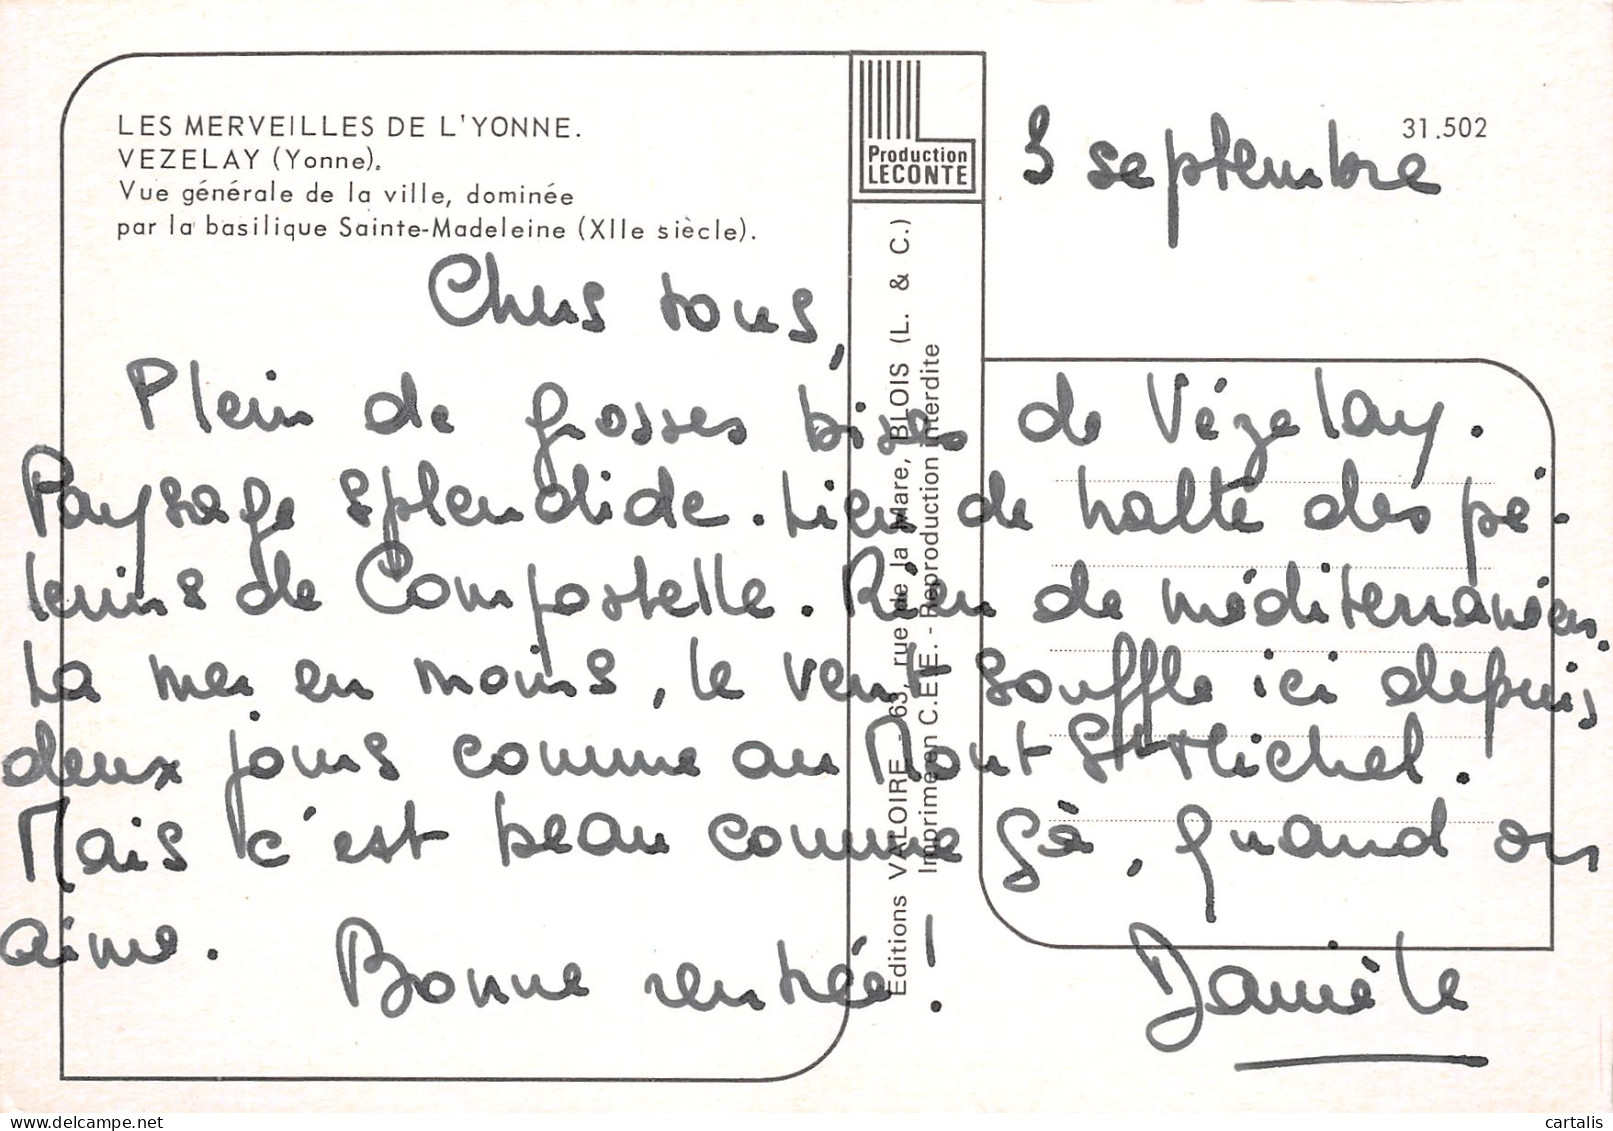 LES MERVEILLES DE L'YONNE.
VEZELAY (Yonne).
Vue générale de la ville, dominée
par la basilique Sainte-Madeleine (XIIe siècle).
Production
LECONTE
31.502
3 septembre
Editions VALOIRE - 63, rue de la Mare, BLOIS (L. & C.)
Imprimé en C.E.E. - Reproduction interdite
Chers tous,
Plein de grosses bises de Vézelay.
Paysage splendide. Lieu de halte des pé-
lerins de Compostelle. Rien de méditerranéen.
La mer en moins, le vent souffle ici depuis
deux jours comme au Mont St-Michel.
Mais c'est beau comme ça, quand on
aime. Bonne rentrée ! Danièle
cartalis
delcampe.net